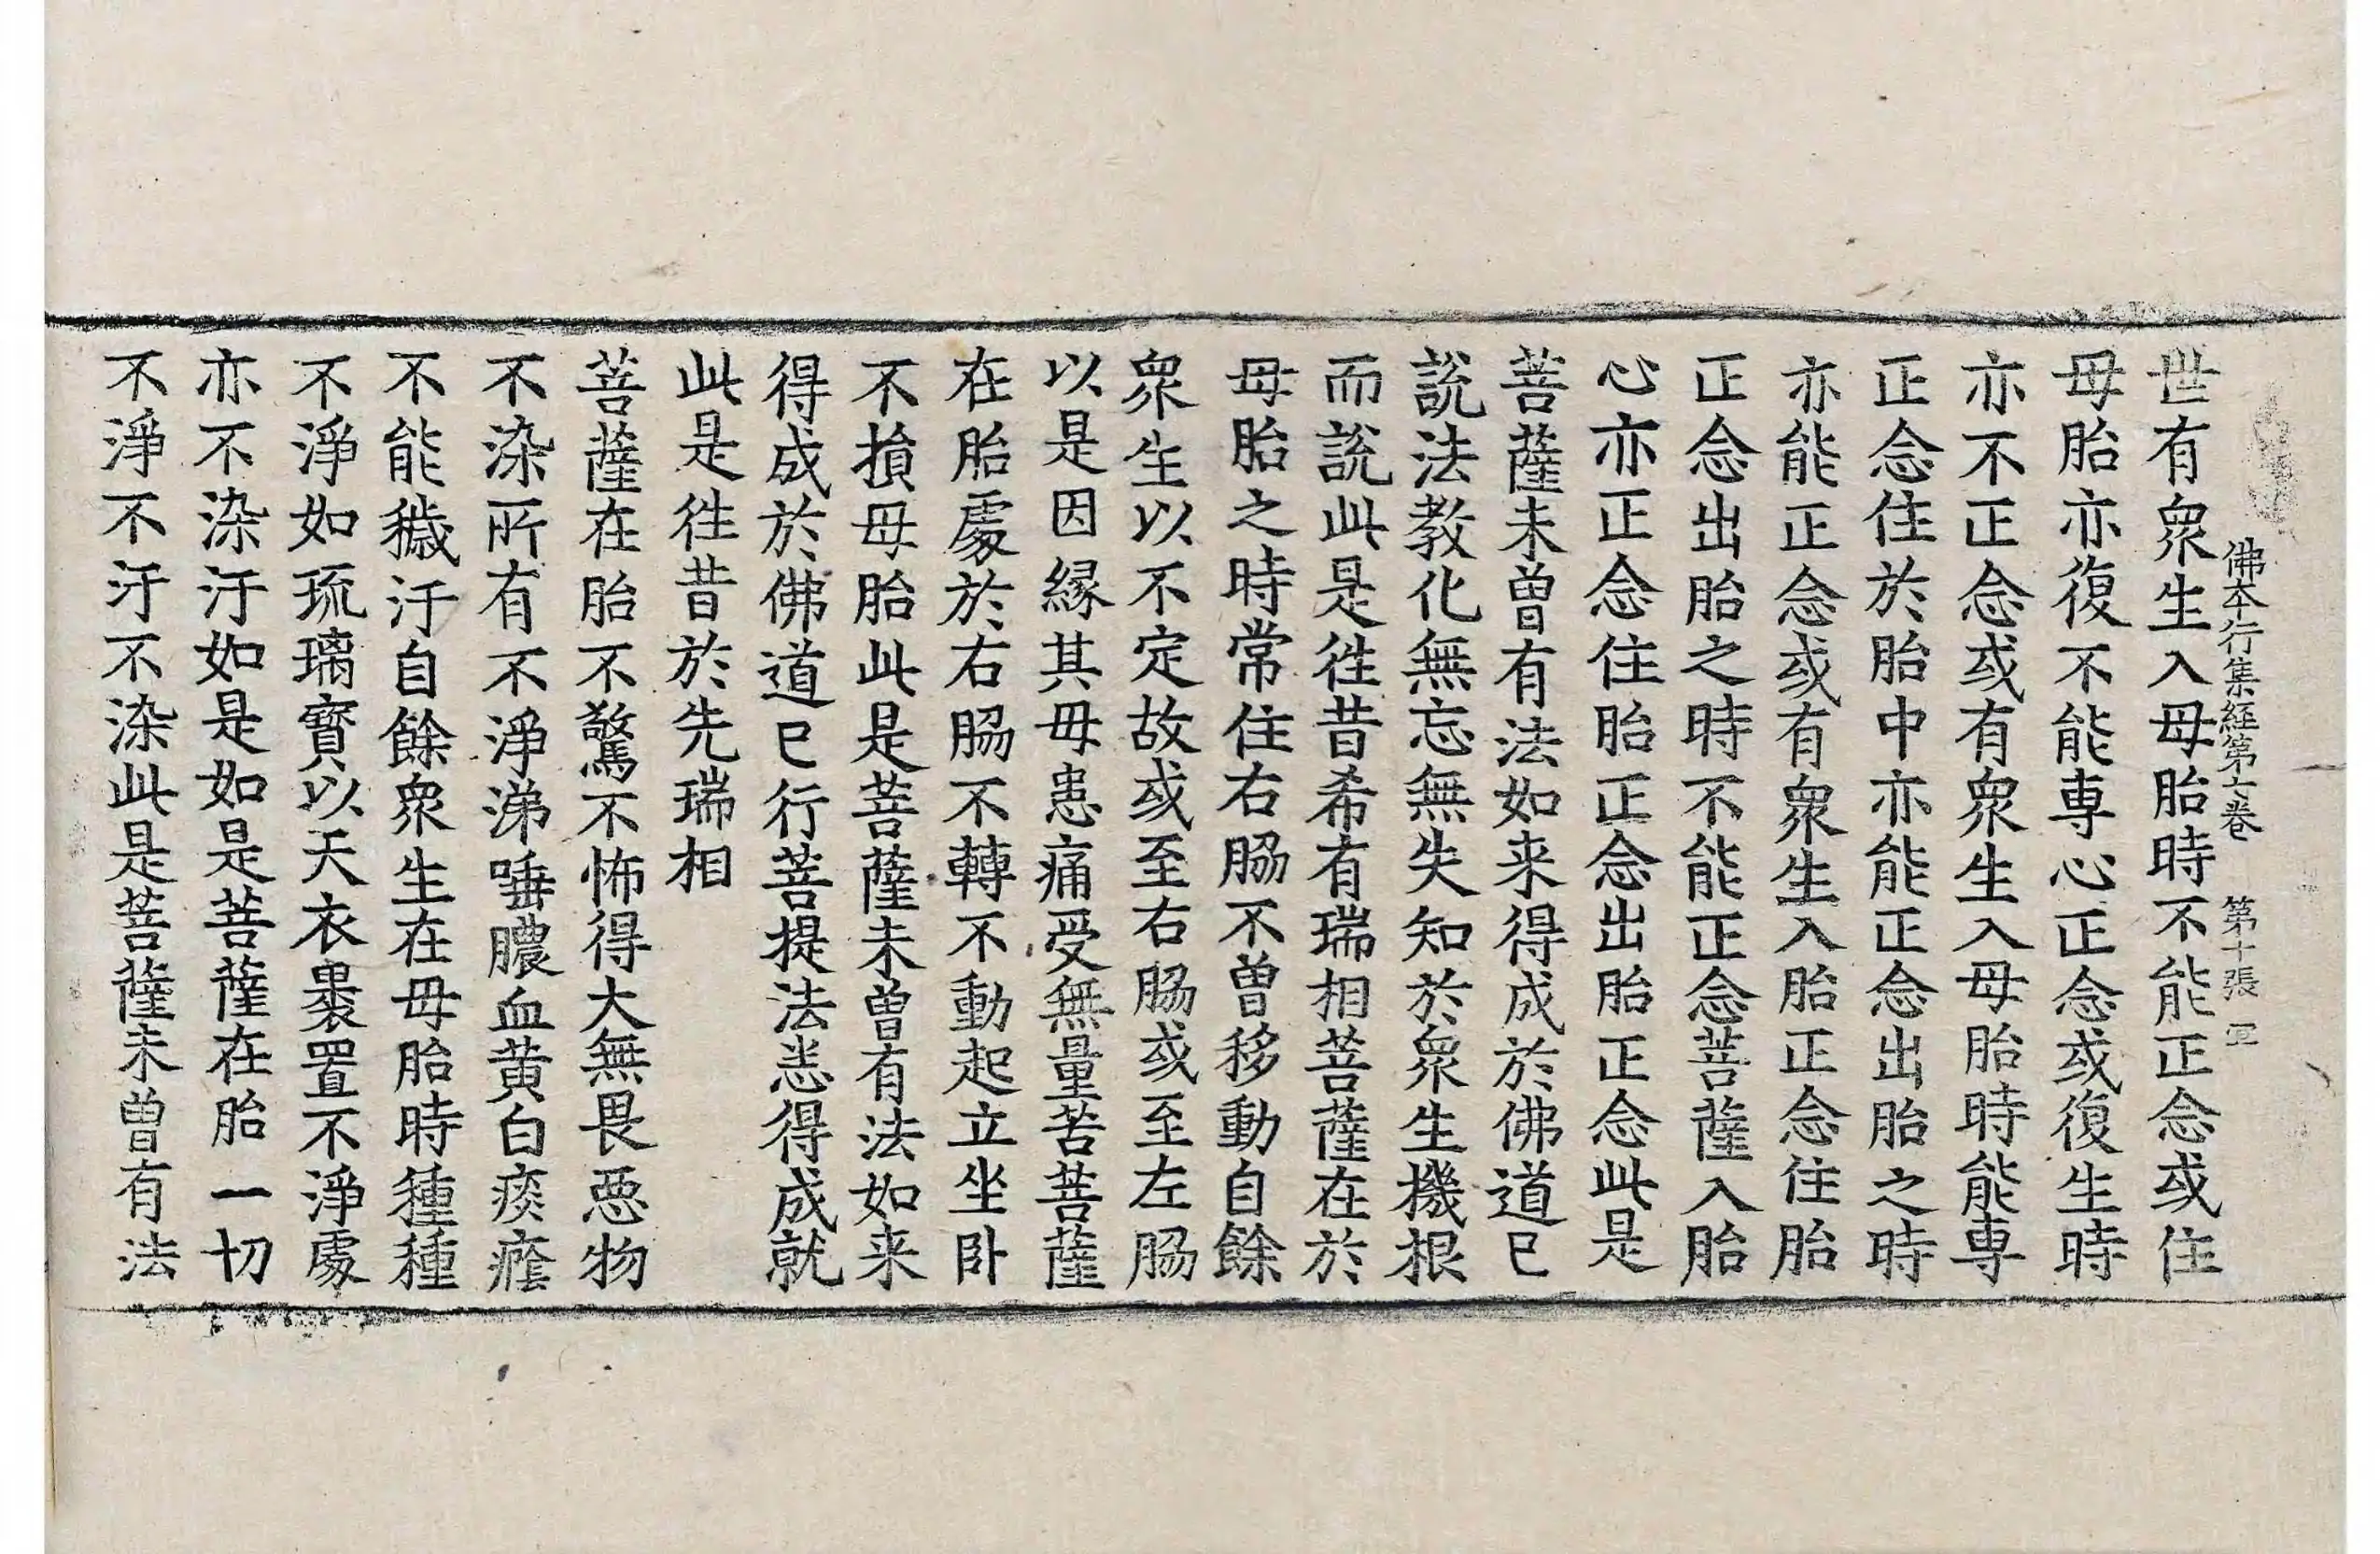 佛本行集經第七卷 第十張
世有衆生入母胎時不能正念或住
母胎亦復不能專心正念或復生時
亦不正念或有衆生入母胎時能專
正念住於胎中亦能正念出胎之時
亦能正念或有衆生入胎正念住胎
正念出胎之時不能正念菩薩入胎
心亦正念住胎正念出胎正念此是
菩薩未曾有法如来得成於佛道已
說法教化無忘無失知於衆生機根
而說此是往昔希有瑞相菩薩在於
母胎之時常住右脇不曾移動自餘
衆生以不定故或至右脇或至左脇
以是因縁其母患痛受無量苦菩薩
在胎處於右脇不轉不動起立坐卧
不損母胎此是菩薩未曾有法如来
得成於佛道已行菩提法悉得成就
此是往昔於先瑞相
菩薩在胎不驚不怖得大無畏惡物
不染所有不淨涕唾膿血黄白痰癊
不能穢汙自餘衆生在母胎時種種
不淨如琉璃寳以天衣褁置不淨處
亦不染汙如是如是菩薩在胎一切
不淨不汙不染此是菩薩未曾有法